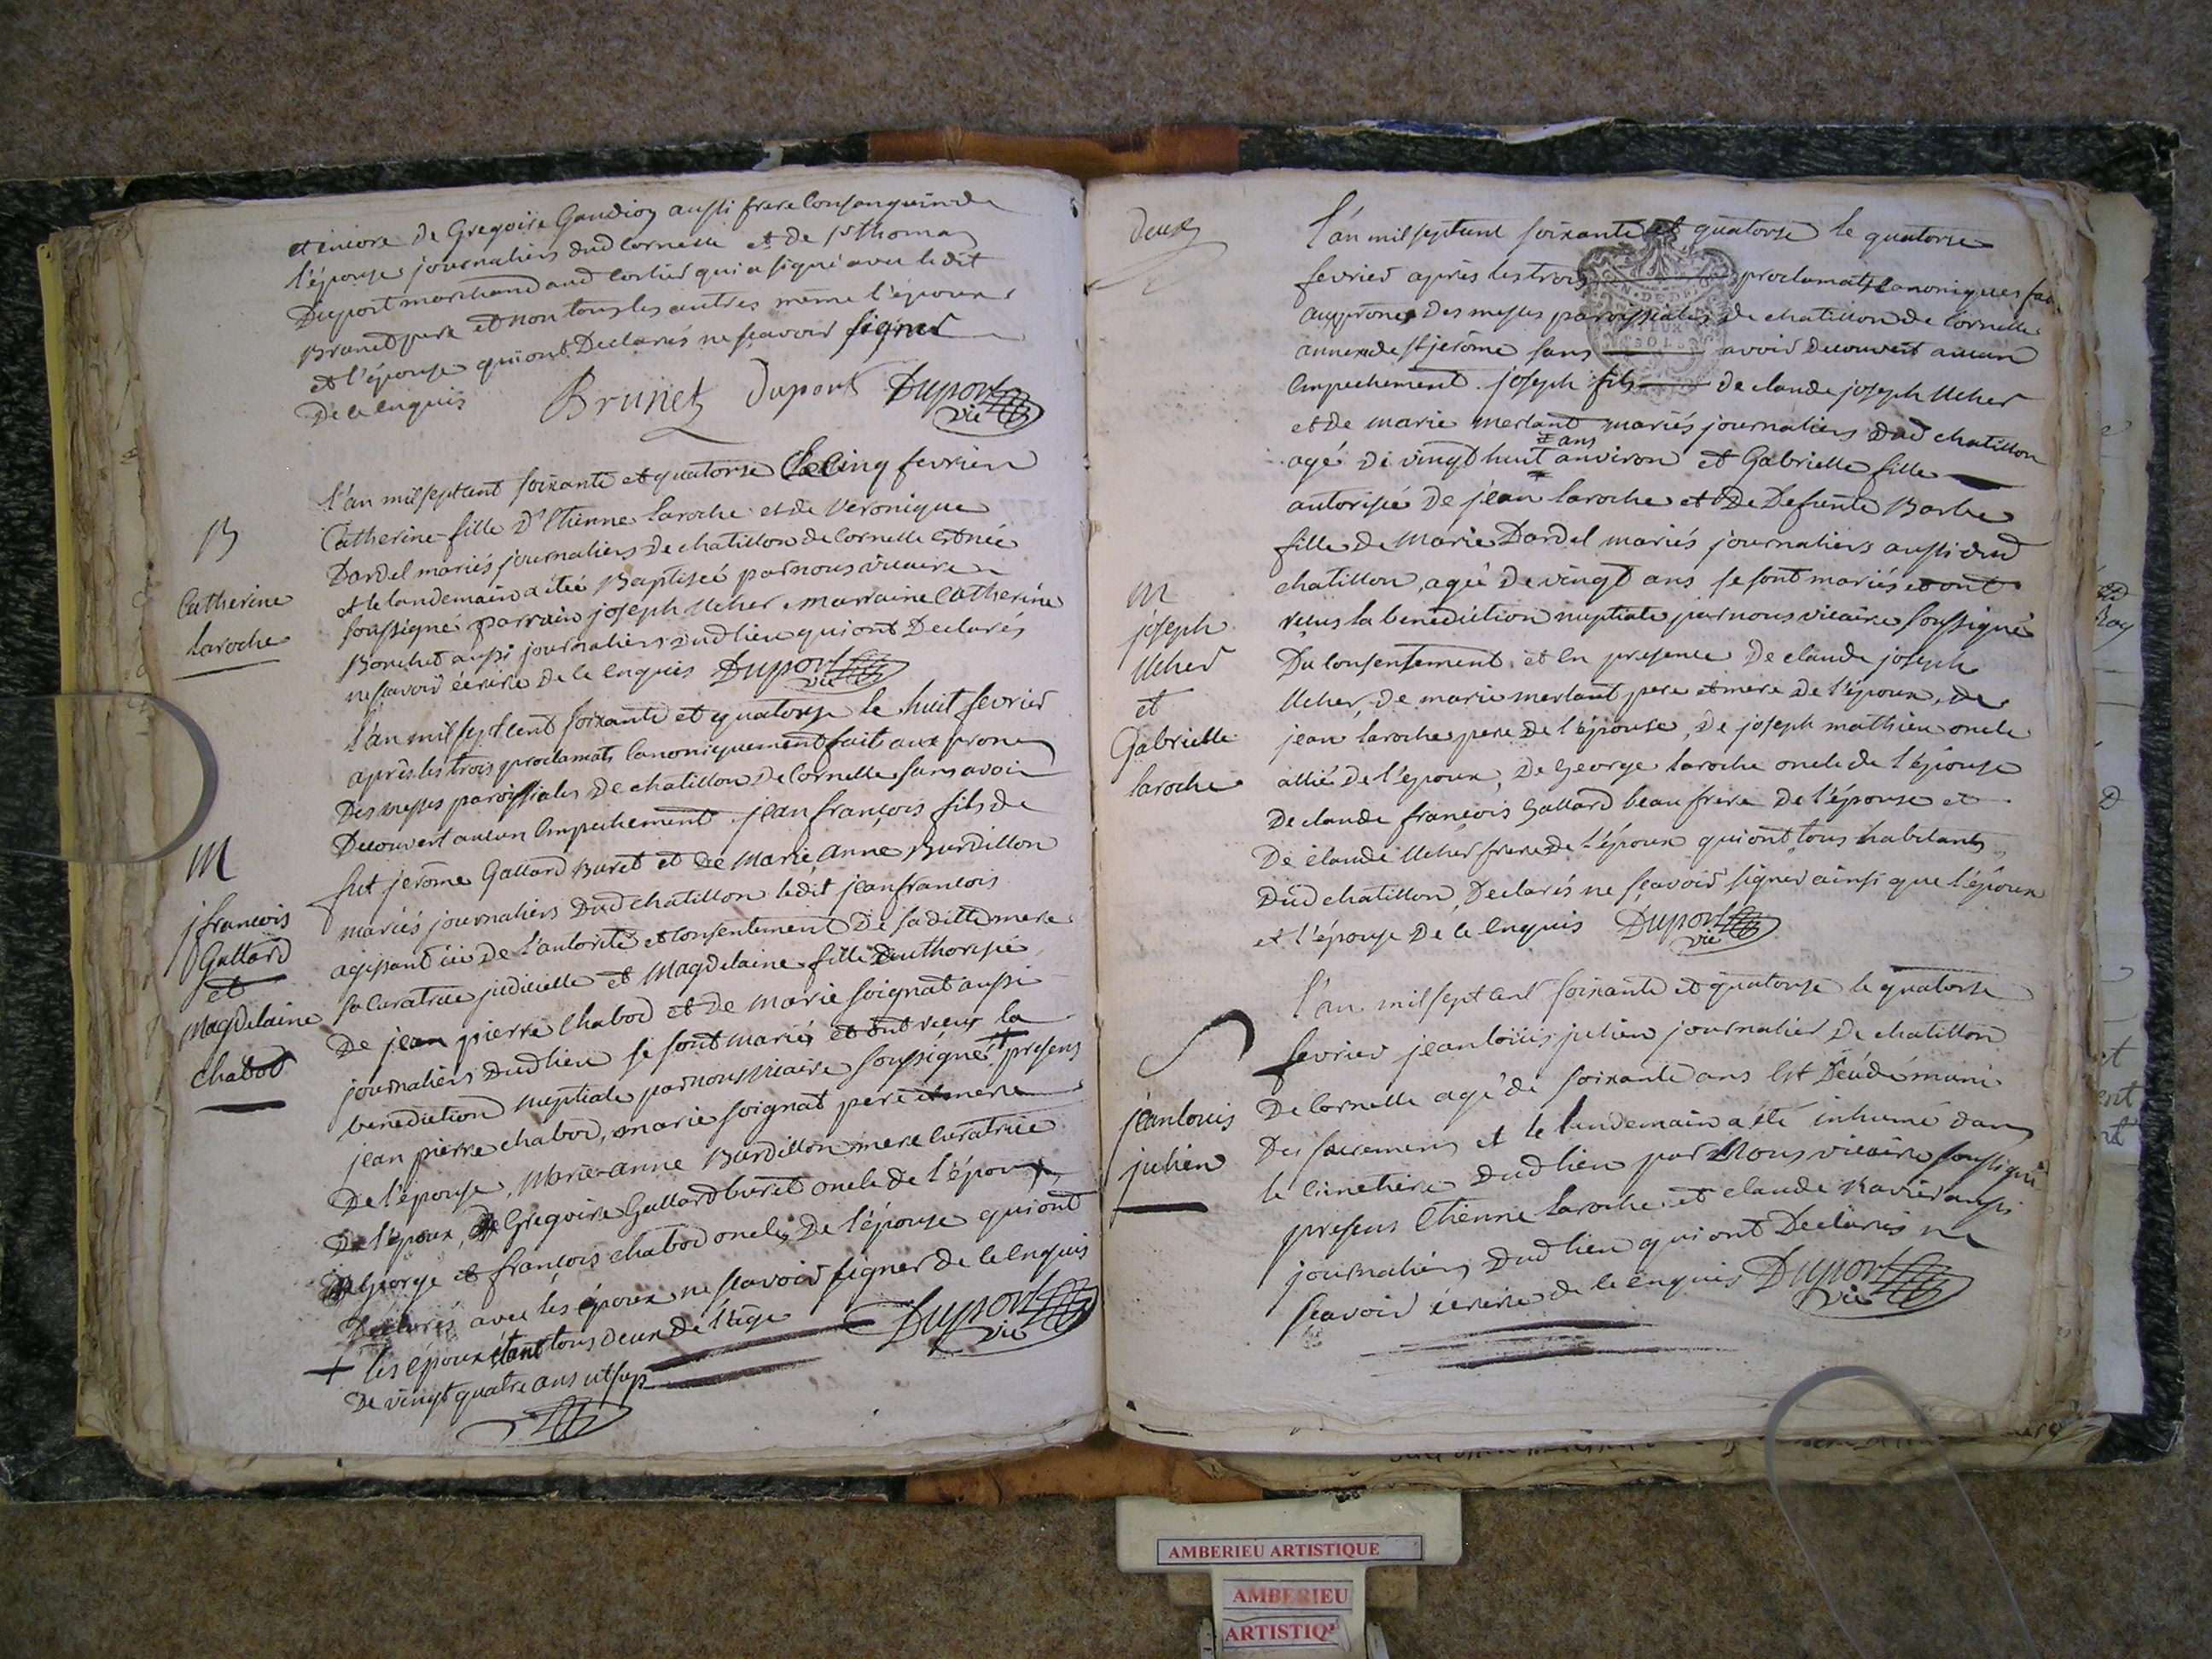 et encore de Gregoire Gaudion aussi frere Consanguin de
l'épouse journaliers dud Cornelle et de sr thomas
Duport marchand aud Corlier qui a signé avec ledit
Brunet pere et non tous les autres même l'époux
et l'épouse qui ont Declarés ne scavoir signer
De ce Enquis
Brunet Duport Duport vic
B
Catherine
Laroche
L'an mil sept cent soixante et quatorse Le Cinq fevrier
Catherine fille D'Etienne Laroche et de Veronique
Dardel mariés journaliers De chatillon de Cornelle est née
et le landemain a étée Baptisée par nous vicaire
soussigné parrain joseph Ucher marraine Catherine
Bouchet aussi journaliers dud lieu qui ont Declarés
ne scavoir écrire De ce Enquis Duport vic
M
j francois
Gallard
et
Magdelaine
Chabod
L'an mil sept Cent soixante et quatorse le huit fevrier
après les trois proclamats Canoniquement faits aux prones
Des messes paroissiales De chatillon De Cornelle sans avoir
Decouvert aucun Empechement jean françois fils de
fut jerome Gallard Buret et De Marie Anne Burdillon
mariés journaliers Dud chatillon ledit jean francois
agissant ici De l'autorité et Consentement De sa ditte mere
sa Curatrice judicielle et Magdelaine fille Duthorisée
De jean pierre Chabod et De Marie soignat aussi
journaliers Dud lieu se sont mariés et ont reçus la
benediction nuptiale par nous vicaire soussigné + presens
jean pierre chabod, marie soignat pere et mere
De l'épouse, Marie-anne Burdillon mere Curatrice
De l'époux, De Gregoire Gallard buret oncle de l'époux,
De George et francois chabod oncles De l'épouse qui ont
Declarés avec les époux ne scavoir signer de ce Enquis
+ les époux étant tous deux De l'age
De vingt quatre ans ut sup
Duport vic
Deux
L'an mil sept cent soixante et quatorse le quatorse
fevrier après les trois proclamats Canoniques fai
aux prones Des messes paroissiales de chatillon de Cornelle
annexe de st jerôme sans avoir Decouvert aucun
Empechement. joseph fils de claude joseph Ucher
et de marie merlant mariés journaliers Dud chatillon
ans
agé De vingt huit anviron et Gabrielle fille
autorisée De jean Laroche et De Defunte Barbe
fille de Marie Dardel mariés journaliers aussi dud
chatillon, agée De vingt ans se sont mariés et ont
reçus la benediction nuptiale par nous vicaire soussigné
Du Consentement et En presence De claude joseph
Ucher, de marie merlant pere et mere De l'époux, de
jean laroche pere De l'épouse, De joseph mathieu oncle
allié De l'époux, De George laroche oncle de l'épouse
De claude francois Gallard beau frere De l'épouse et
De claude Ucher frere De l'époux qui ont tous habitants
Dud chatillon, Declarés ne scavoir signer ainsi que l'époux
et l'épouse De ce Enquis Duport vic
m
joseph
Ucher
et
Gabrielle
laroche
S
jean louis
julien
L'an mil sept cent soixante et quatorse le quatorse
fevrier jean loüis julien journalier De chatillon
De Cornelle agé de soixante ans Est Décédé muni
Des sacremens et le landemain a été inhumé dans
le Cimetiere Dud lieu par Nous vicaire soussigné
presens Etienne Laroche et claude Ravier aussi
journaliers Dud lieu qui ont Declarés ne
scavoir écrire de ce Enquis Duport vic
AMBERIEU ARTISTIQUE
AMBERIEU
ARTISTIQ